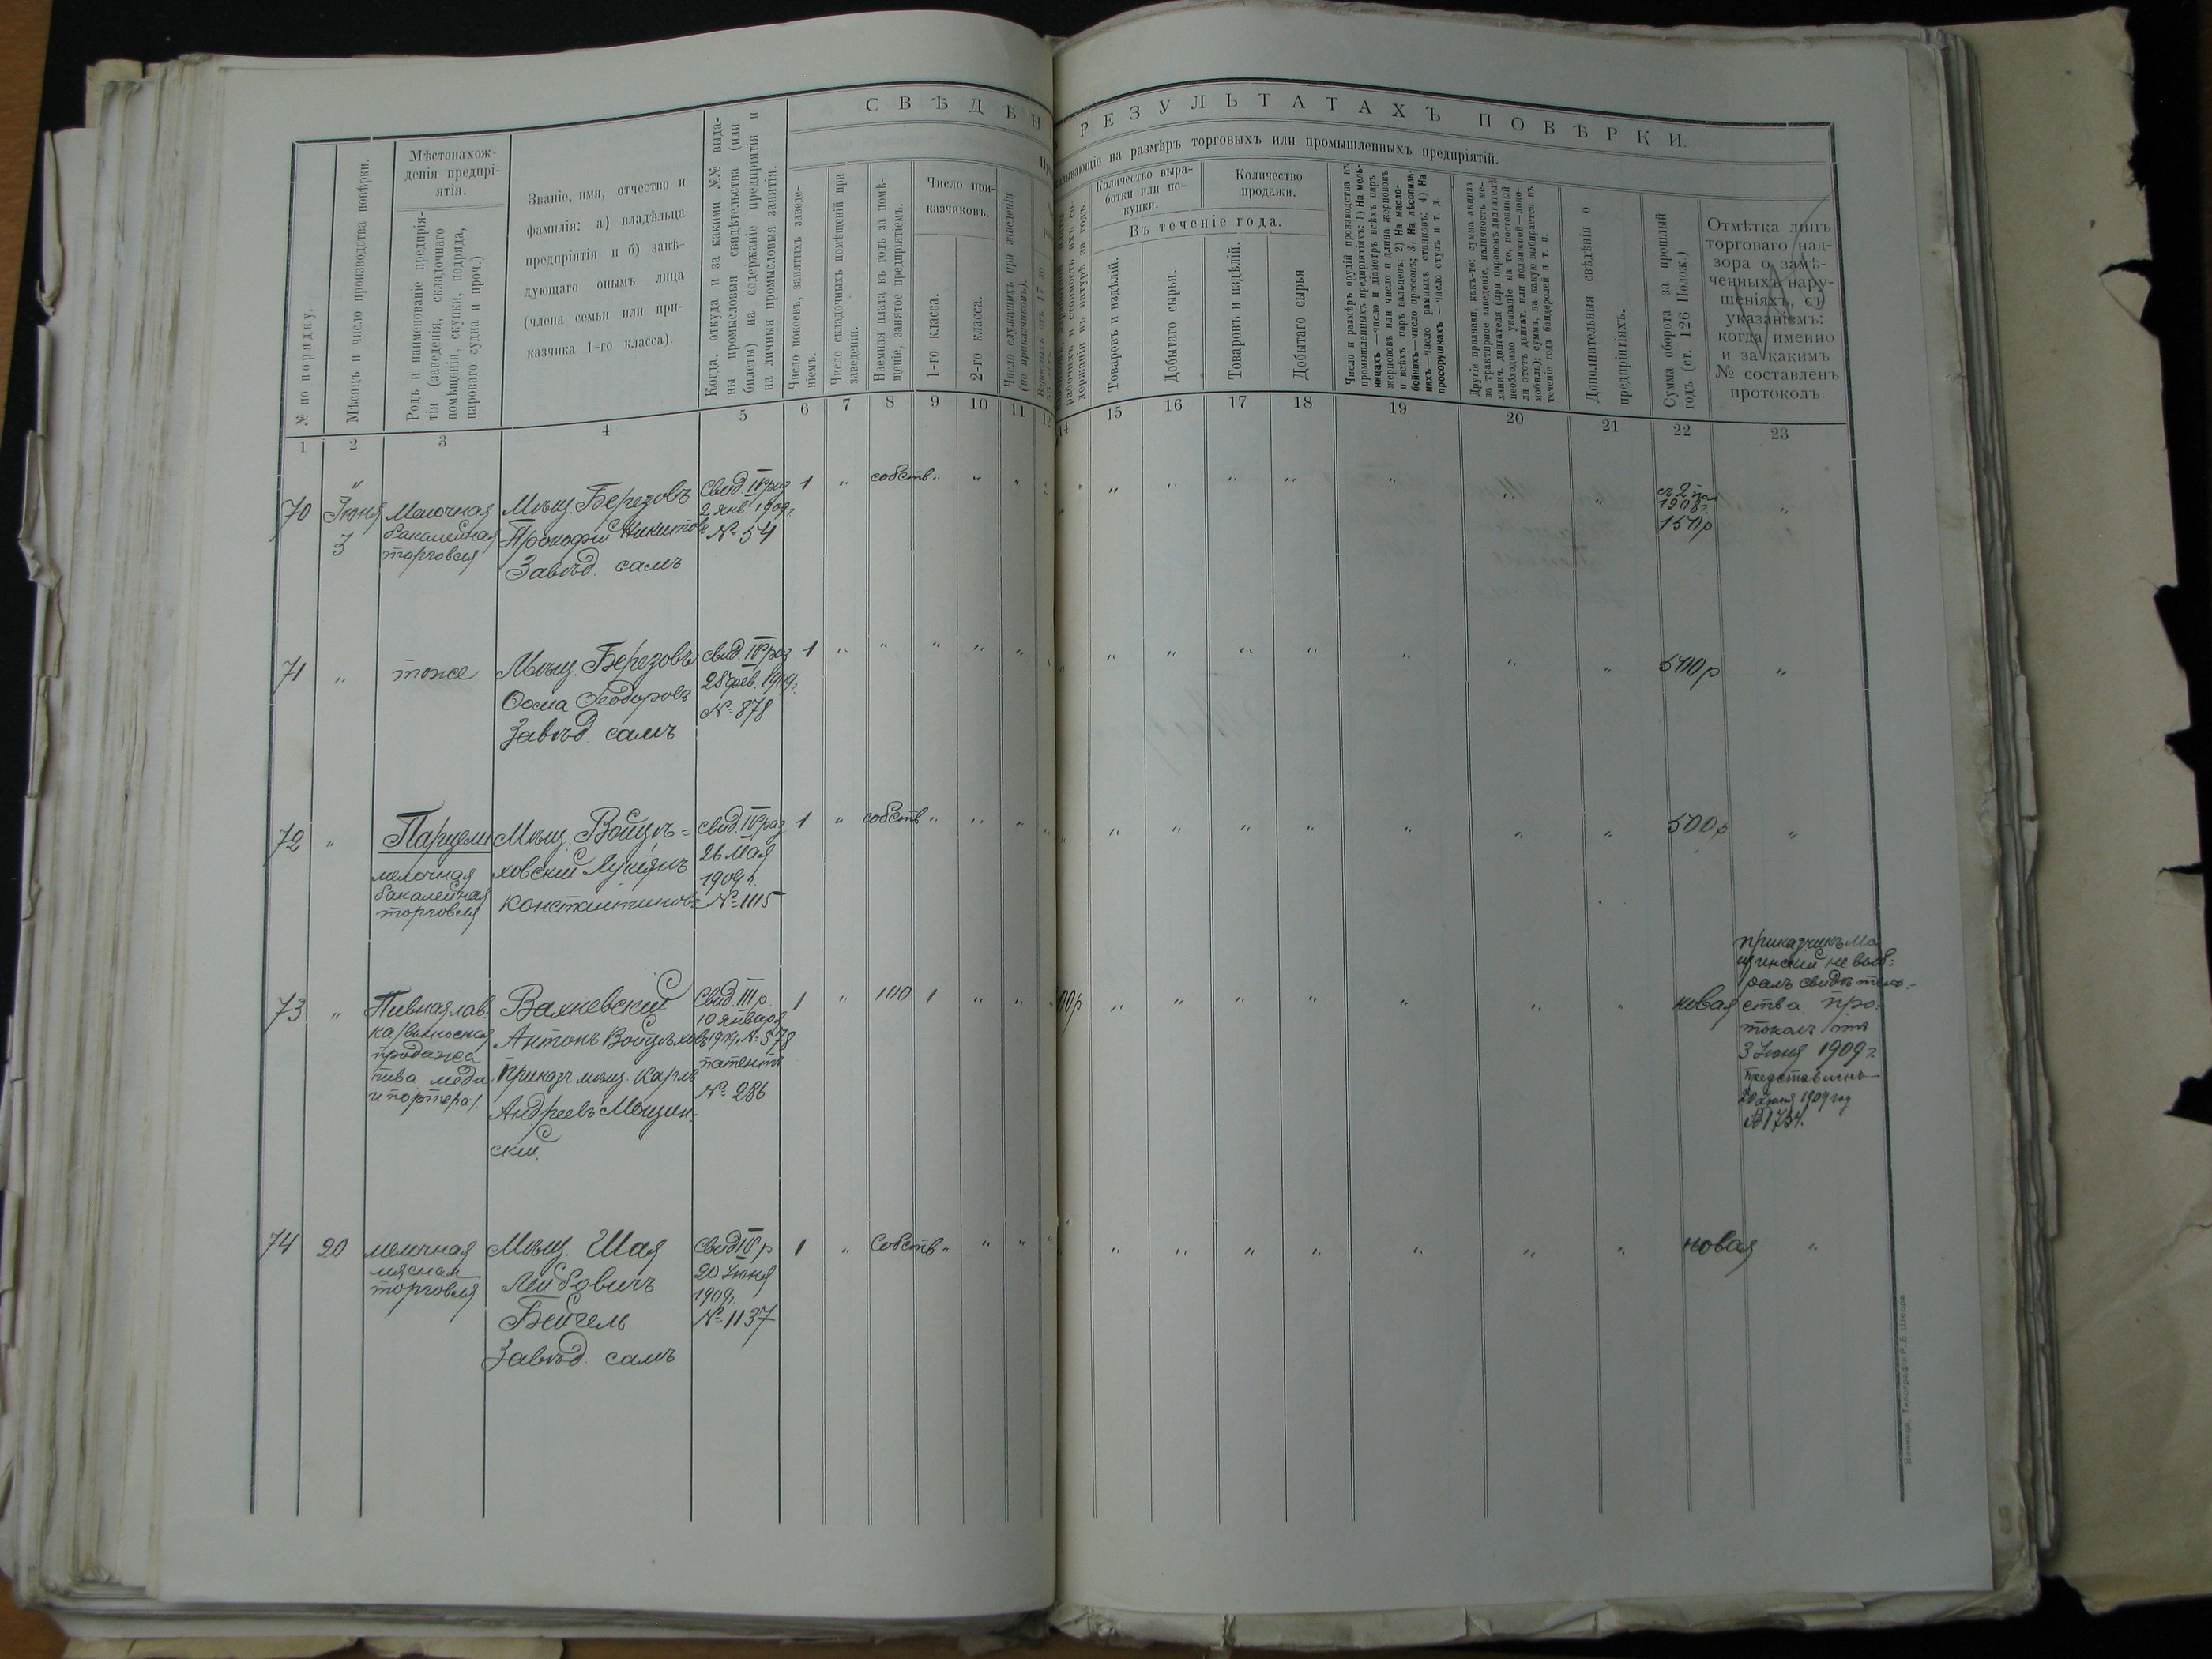 СВѢДѢН
РЕЗУЛЬТАТАХЪ ПОВѢРКИ.
зывающіе на размѣръ торговыхъ или промышленныхъ предпріятій.
№ по порядку.
Мѣсяцъ и число производства повѣрки.
Мѣстонахож-
денія предпрі-
ятія.
Родъ и наименованіе предпрія-
тія (заведенія, складочнаго
помѣщенія, скупки, подряда,
пароваго судна и проч.)
Званіе, имя, отчество и
фамилія: а) владѣльца
предпріятія и б) завѣ-
дующаго онымъ лица
(члена семьи или при-
казчика 1-го класса).
Когда, откуда и за какими №№ выда-
ны промысловыя свидѣтельства (или
билеты) на содержаніе предпріятія и
на личныя промысловыя занятія.
Число покоевъ, занятыхъ заведе-
ніемъ.
Число складочныхъ помѣщеній при
заведеніи.
Наемная плата въ годъ за помѣ-
щеніе, занятое предпріятіемъ.
Число при-
казчиковъ.
1-го класса.
2-го класса.
Число служащихъ при заведеніи
(не приказчиковъ).
Количество выра-
ботки или по-
купки.
Количество
продажи.
Въ теченіе года.
Товаровъ и издѣлій.
Добытаго сырья.
Товаровъ и издѣлій.
Добытаго сырья
Число и размѣръ орудій производства въ
промышленныхъ предпріятіяхъ: 1) На мель-
ницахъ—число и діаметръ всѣхъ паръ
жернововъ или число и длина жернововъ
и всѣхъ паръ вальцевъ; 2) На масло-
бойняхъ—число прессовъ; 3) На лѣсопиль-
няхъ—число рамныхъ станковъ; 4) На
просорушкахъ—число ступъ и т. д.
Другіе признаки, какъ-то: сумма акциза
за трактирное заведеніе, наличность ме-
ханич. двигателя (при паровомъ двигателѣ
необходимо указаніе на то, постоянный
ли этотъ двигат. или подвижной—локо-
мобиль); сумма, на какую выбирается въ
теченіе года бандеролей и т. п.
Дополнительныя свѣдѣнія о
предпріятіяхъ.
Сумма оборота за прошлый
годъ (ст. 126 Полож.)
Отмѣтка лицъ
торговаго над-
зора о замѣ-
ченныхъ нару-
шеніяхъ, съ
указаніемъ:
когда именно
и за какимъ
№ составленъ
протоколъ.
1 2 3 4 5 6 7 8 9 10 11 12 14 15 16 17 18 19 20 21 22 23
70 Іюня Мелочная Мѣщ. Березовъ Свид. IV раз 1 " собств. " " "
3 бакалейная Прокофій Никитовъ 2 янв. 1909 г.
торговля Завѣд. самъ № 54
съ 2 пол
1908 г.
150 р
71 " тоже Мѣщ. Березовъ свид. IV раз 1 " " " " " 500 р "
Ѳома Ѳеодоровъ 28 фев. 1909 г.
Завѣд. самъ № 878
72 " Парцели Мѣщ. Войцѣ- свид. IV раз 1 " собств. " " " 500 р "
мелочная ховскій Лукіянъ 26 Мая
бакалейная Константиновъ 1909 г.
торговля № 1115
73 " Пивная лав- Валневскій Свид. III р. 1 " 100 1 " " новая
ка /выносная Антонъ Войцѣховъ 10 Января 1909 г. № 578
продажа Приказч. мѣщ. Карлъ патентъ
пива меда Андреевъ Мощин- № 286
и портера/. скій.
приказчикъ Мо
щинскій не выб-
ралъ свидѣтель-
ства про-
токолъ отъ
3 Іюня 1909 г.
представлено
20 Іюня 1909 год
№ 1754.
74 20 мелочная Мѣщ. Шая Свид IV р 1 " Собств. " " " новая "
мясная Лейбовичъ 20 Іюня
торговля Бейгель 1909 г.
Завѣд. самъ № 1137
Винница, Типографія Р. Б. Шерра